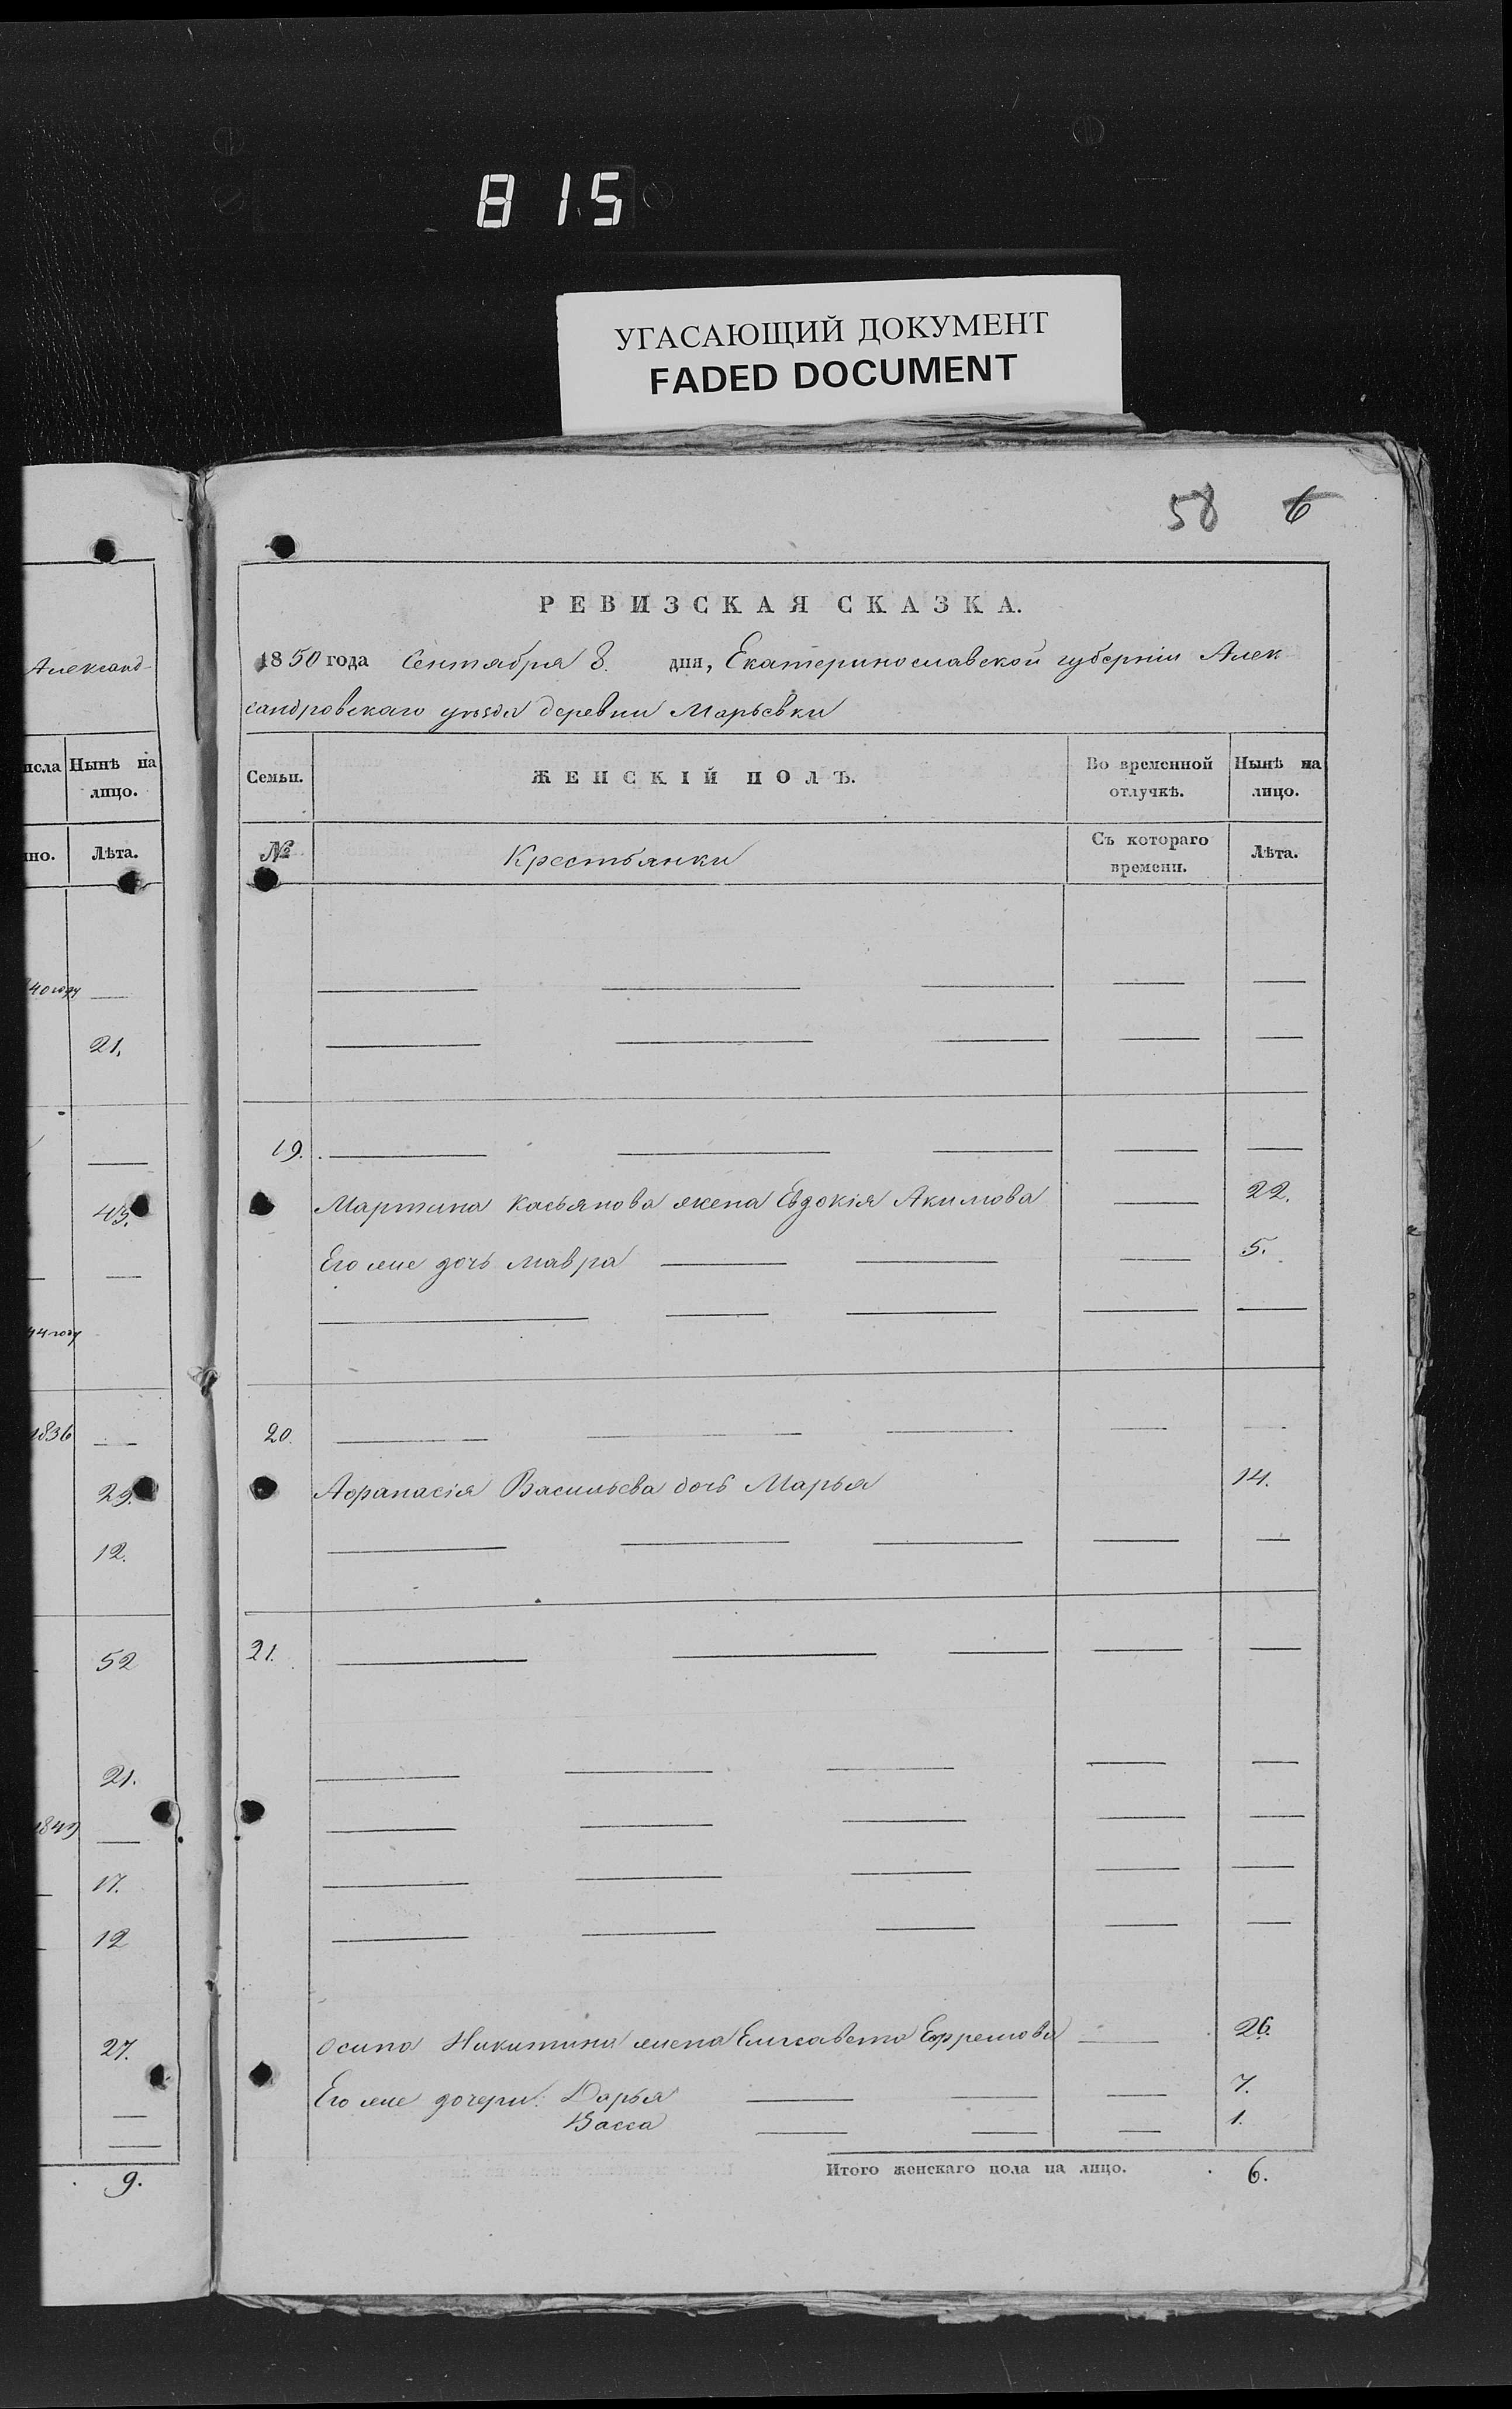 815
УГАСАЮЩИЙ ДОКУМЕНТ
FADED DOCUMENT
58 6
Александ-
исла Нынѣ на лицо.
но. Лѣта.
40 году —
21.
—
45.
— —
44 году
1836 —
29.
12.
52
21.
1849 —
17.
12
27.
—
—
9.
РЕВИЗСКАЯ СКАЗКА.
1850 года Сентября 8. дня, Екатеринославской губерніи Алек-
сандровскаго уѣзда деревни Марьевки
Семьи. ЖЕНСКІЙ ПОЛЪ. Во временной отлучкѣ. Нынѣ на лицо.
№ Крестьянки Съ котораго времени. Лѣта.
— — — — —
— — — — —
19. — — — — —
Мартина Касьянова жена Евдокія Акимова — 22.
Его же дочь Мавра — — — 5.
— — — — —
20. — — — — —
Афанасія Васильева дочь Марья 14.
— — — — —
21. — — — — —
— — — — —
— — — — —
— — — — —
— — — — —
Осипа Никитина жена Елисавета Ефремова — 26.
Его же дочери: Дарья — — — 7.
Васса — — — 1.
Итого женскаго пола на лицо. 6.